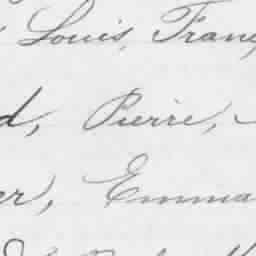 Louis, Fran
d, Pierre,
er, Emma